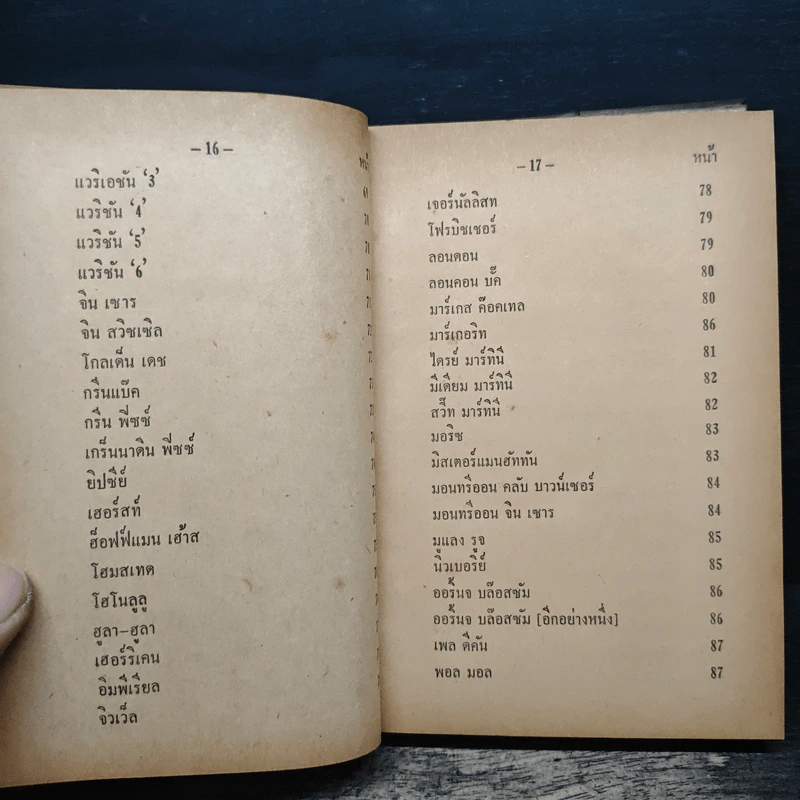 – 16 –
แวริเอชัน ‘3’
แวริชัน ‘4’
แวริชัน ‘5’
แวริชัน ‘6’
จิน เซาร
จิน สวิซเซิล
โกลเด็น เดช
กรีนแบ๊ค
กรีน พี่ซซ์
เกร็นนาดิน พี่ซซ์
ยิปซีย์
เฮอร์สท์
ฮ็อฟฟ์แมน เฮ้าส
โฮมสเทด
โฮโนลูลู
ฮูลา–ฮูลา
เฮอร์ริเคน
อิมพีเรียล
จิวเว็ล
– 17 – หน้า
เจอร์นัลลิสท 78
โฟรบิชเชอร์ 79
ลอนดอน 79
ลอนคอน บั๊ค 80
มาร์เกส ค๊อคเทล 80
มาร์เกอริท 86
ไดรย์ มาร์ทินี 81
มีเดียม มาร์ทินี 82
สวี๊ท มาร์ทินี 82
มอริซ 83
มิสเตอร์แมนฮัททัน 83
มอนทรีออน คลับ บาวน์เซอร์ 84
มอนทรีออน จิน เซาร 84
มูแลง รูจ 85
นิวเบอรีย์ 85
ออร์นจ บล๊อสซัม 86
ออร์นจ บล๊อสซัม [อีกอย่างหนึ่ง] 86
เพล ดีคัน 87
พอล มอล 87